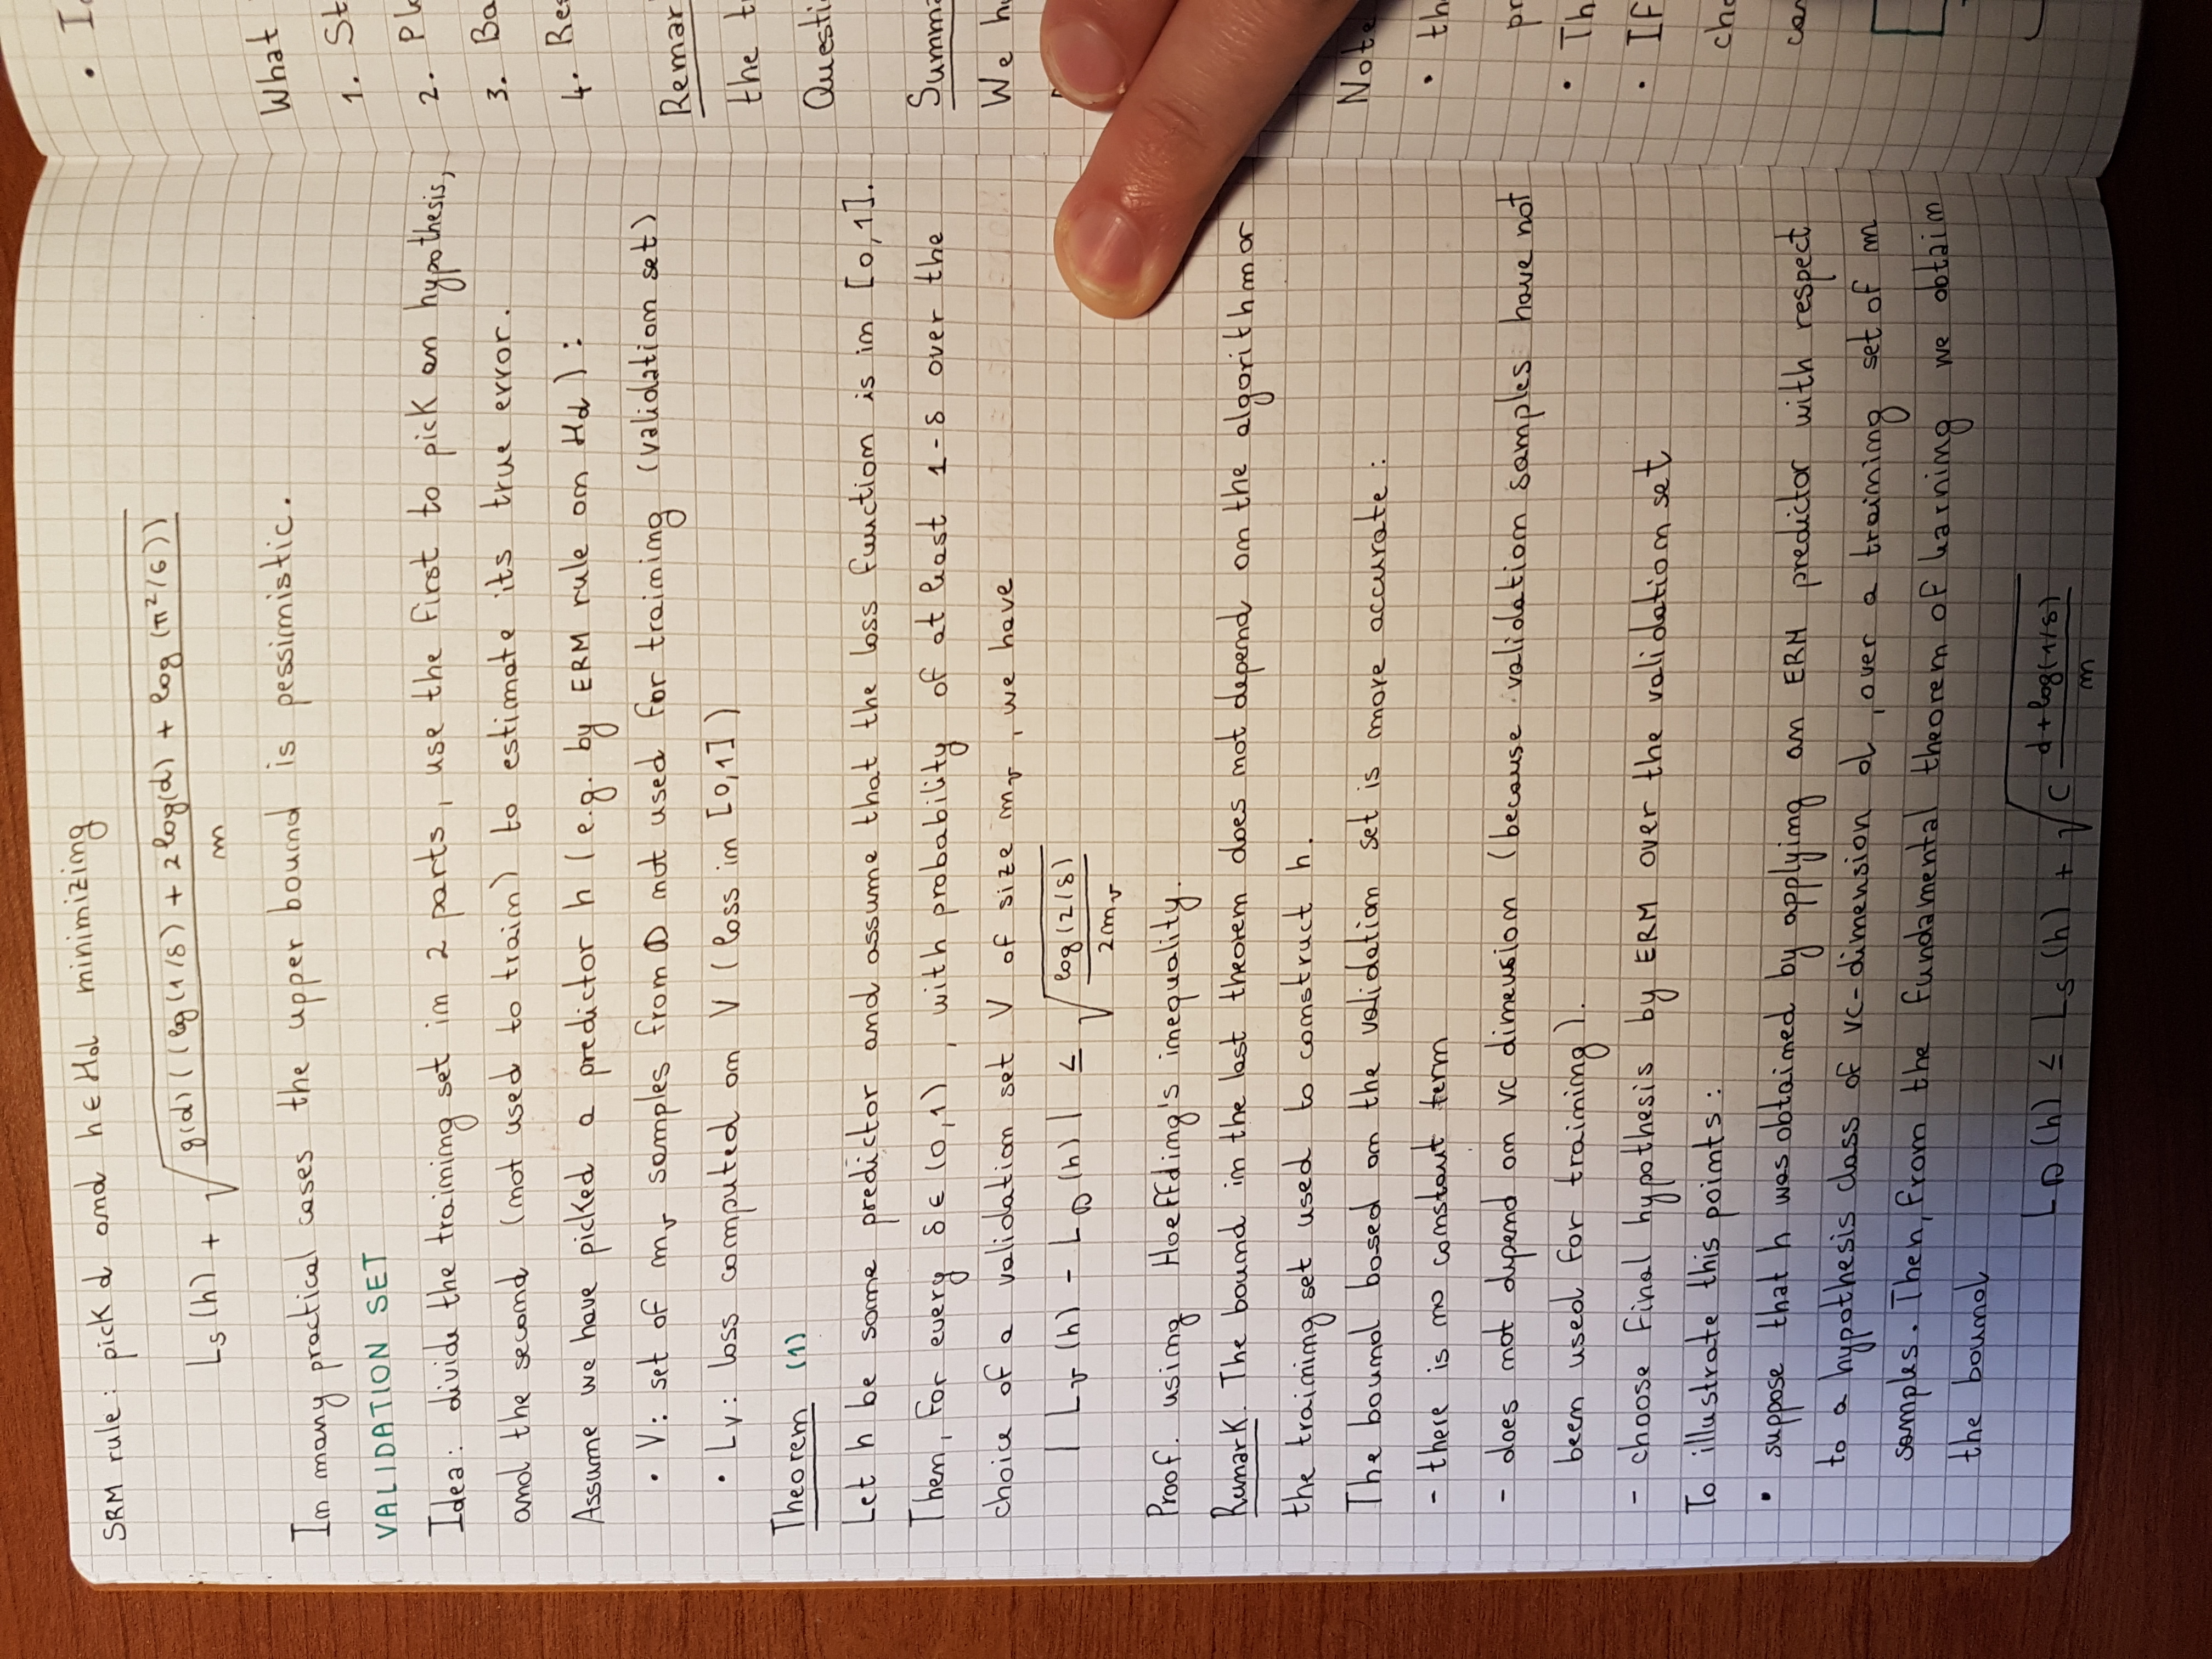 SRM rule: pick d and h ∈ H_d minimizing
L_S(h) + √(g(d)((log(1/δ) + 2log(d) + log(π²/6)) / m)
In many practical cases the upper bound is pessimistic.
VALIDATION SET
Idea: divide the training set in 2 parts, use the first to pick an hypothesis,
and the second (not used to train) to estimate its true error.
Assume we have picked a predictor h (e.g. by ERM rule on H_d):
• V: set of m_v samples from D not used for training (validation set)
• L_V: loss computed on V (loss in [0,1])
Theorem (1)
Let h be some predictor and assume that the loss function is in [0,1].
Then, for every δ ∈ (0,1), with probability of at least 1-δ over the
choice of a validation set V of size m_v, we have
|L_v(h) - L_D(h)| ≤ √(log(2/δ) / 2m_v)
Proof. using Hoeffding's inequality.
Remark. The bound in the last theorem does not depend on the algorithm or
the training set used to construct h.
The bound based on the validation set is more accurate:
- there is no constant term
- does not depend on VC dimension (because validation samples have not
been used for training).
- choose final hypothesis by ERM over the validation set
To illustrate this points:
• suppose that h was obtained by applying an ERM predictor with respect
to a hypothesis class of VC-dimension d, over a training set of m
samples. Then, from the fundamental theorem of learning we obtain
the bound
L_D(h) ≤ L_S(h) + √(C (d+log(1/δ)) / m)
What
1. St
2. Pl
3. Ba
4. Res
Remar
the t
Questi
Summa
We h
Note
• th
pr
• Th
• If
cho
can